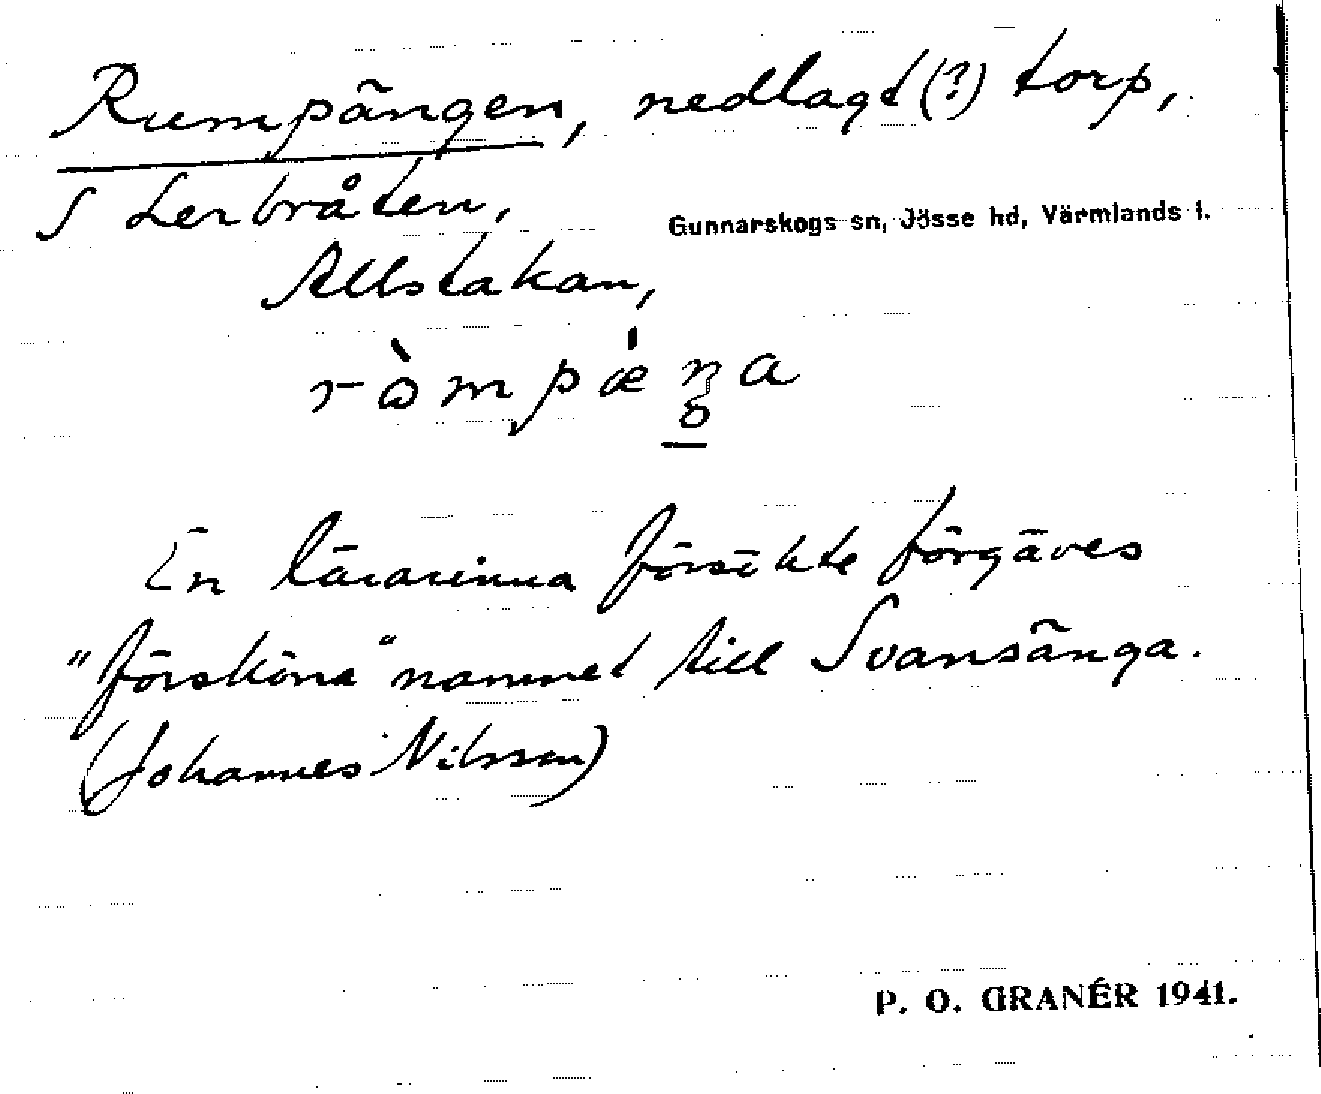 Rumpängen, nedlagt (?) torp,
S Lerbråten,
Gunnarskogs sn, Jösse hd, Värmlands l.
Allstakan,
En lärarinna försökte förgäves
"försköna" namnet till Svansänga.
(Johannes Nilsson)
P. O. GRANÉR 1941.